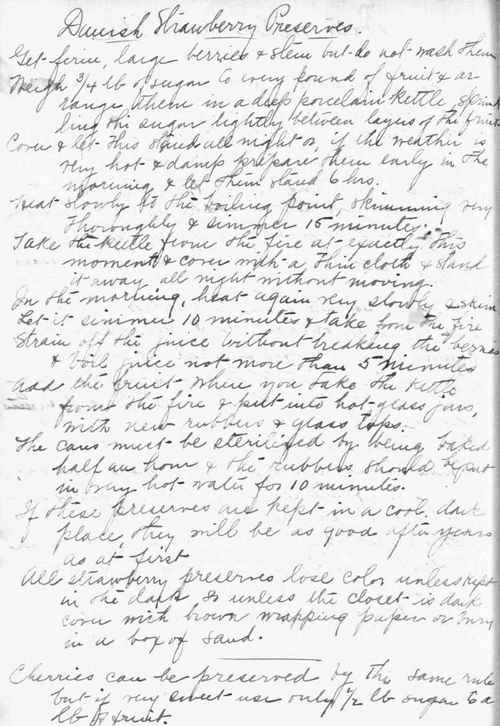 Danish Strawberry Preserves.
Get firm, large berries & stem but do not wash them
Weigh 3/4 lb of sugar to every pound of fruit & ar
range them in a deep porcelain kettle, sprink
ling the sugar lightly between layers of the fruit
Cover & let this stand all night or, if the weather is
very hot & damp prepare them early in the
morning & let them stand 6 hrs.
Heat slowly to the boiling point, skimming very
thoroughly & simmer 15 minutes.
Take the kettle from the fire at exactly this
moment & cover with a thin cloth & stand
it away all night without moving.
In the morning, heat again very slowly & skim
Let it simmer 10 minutes & take from the fire
Strain off the juice without breaking the berries
& boil juice not more than 5 minutes
Add the fruit when you take the kettle
from the fire & put into hot glass jars,
with new rubbers & glass tops.
The cans must be sterilized by being baked
half an hour & the rubbers should
in very hot water for 10 minutes.
If these preserves are kept in a cool, dark
place, they will be as good after years
as at first
All strawberry preserves lose color unless kept
in the dark so unless the closet is dark
cover with brown wrapping paper or bury
in a box of sand.
Cherries can be preserved by the same rule
but if very sweet use only 1/2 lb sugar to a
lb of fruit.